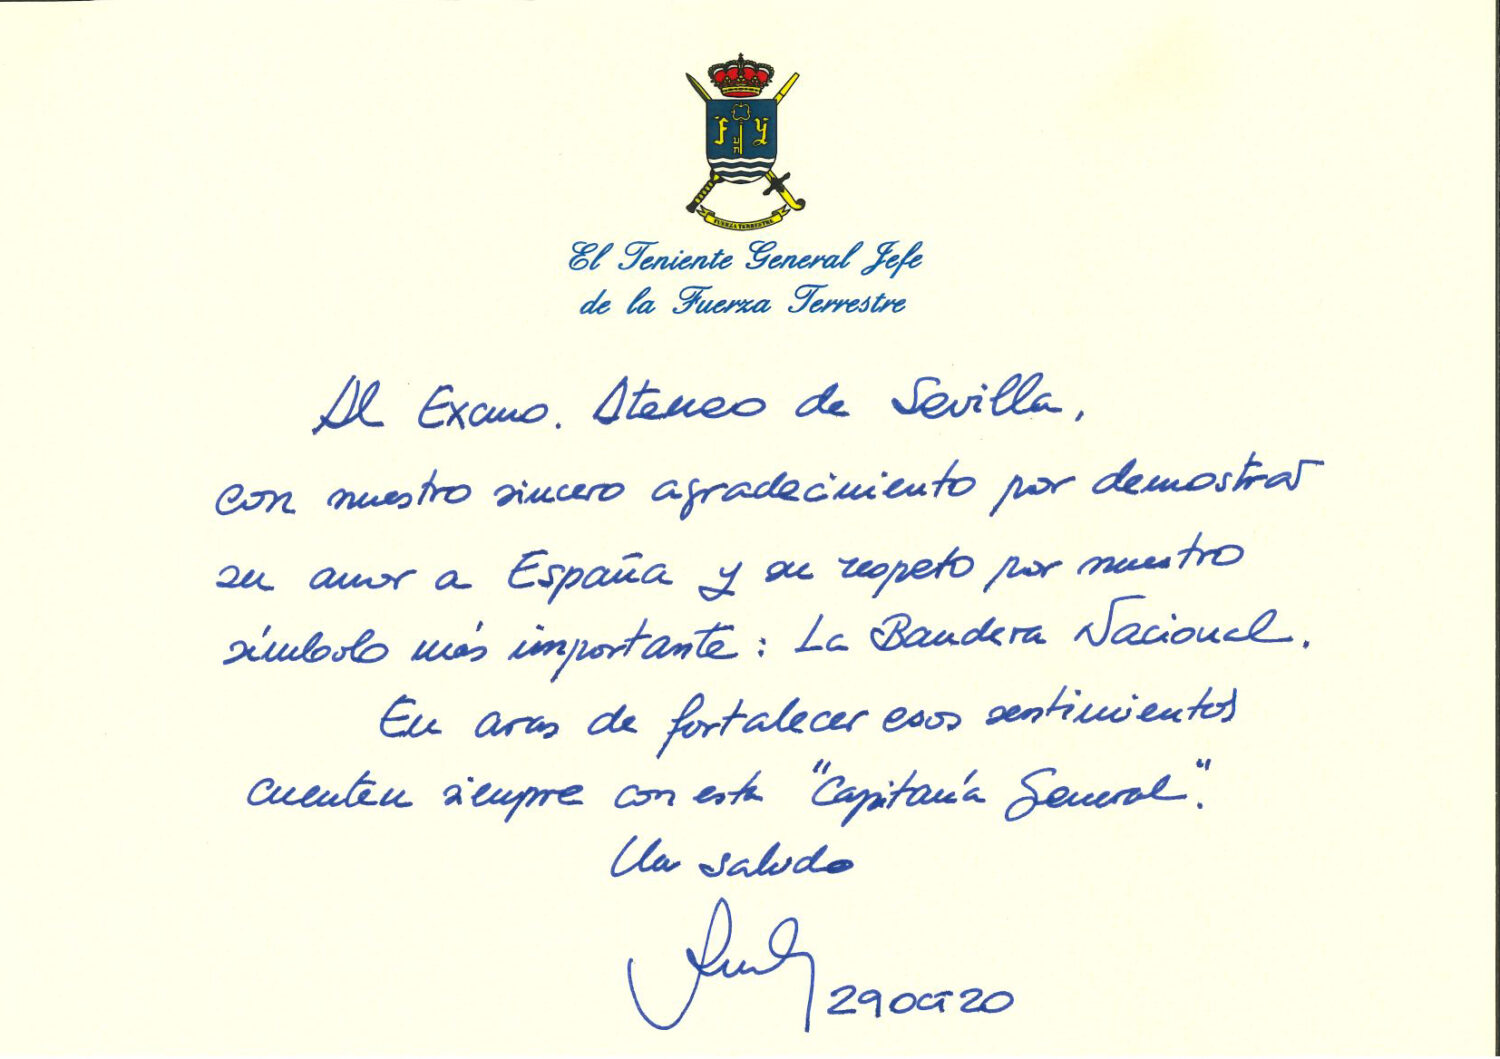 F Y
FUERZA TERRESTRE
El Teniente General Jefe
de la Fuerza Terrestre
Al Excmo. Ateneo de Sevilla,
con nuestro sincero agradecimiento por demostrar
su amor a España y su respeto por nuestro
símbolo más importante: La Bandera Nacional.
En aras de fortalecer esos sentimientos
cuenten siempre con esta "Capitanía General".
Un saludo
29 OCT 20